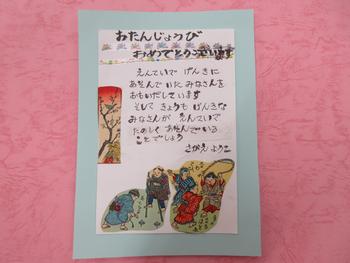 おたんじょうび
おめでとうございます
えんていで げんきに
あそんでいた みなさんを
おもいだしています
そして きょうも げんきな
みなさんが えんていで
たのしく あそんでいる
ことでしょう
さかえ ようこ